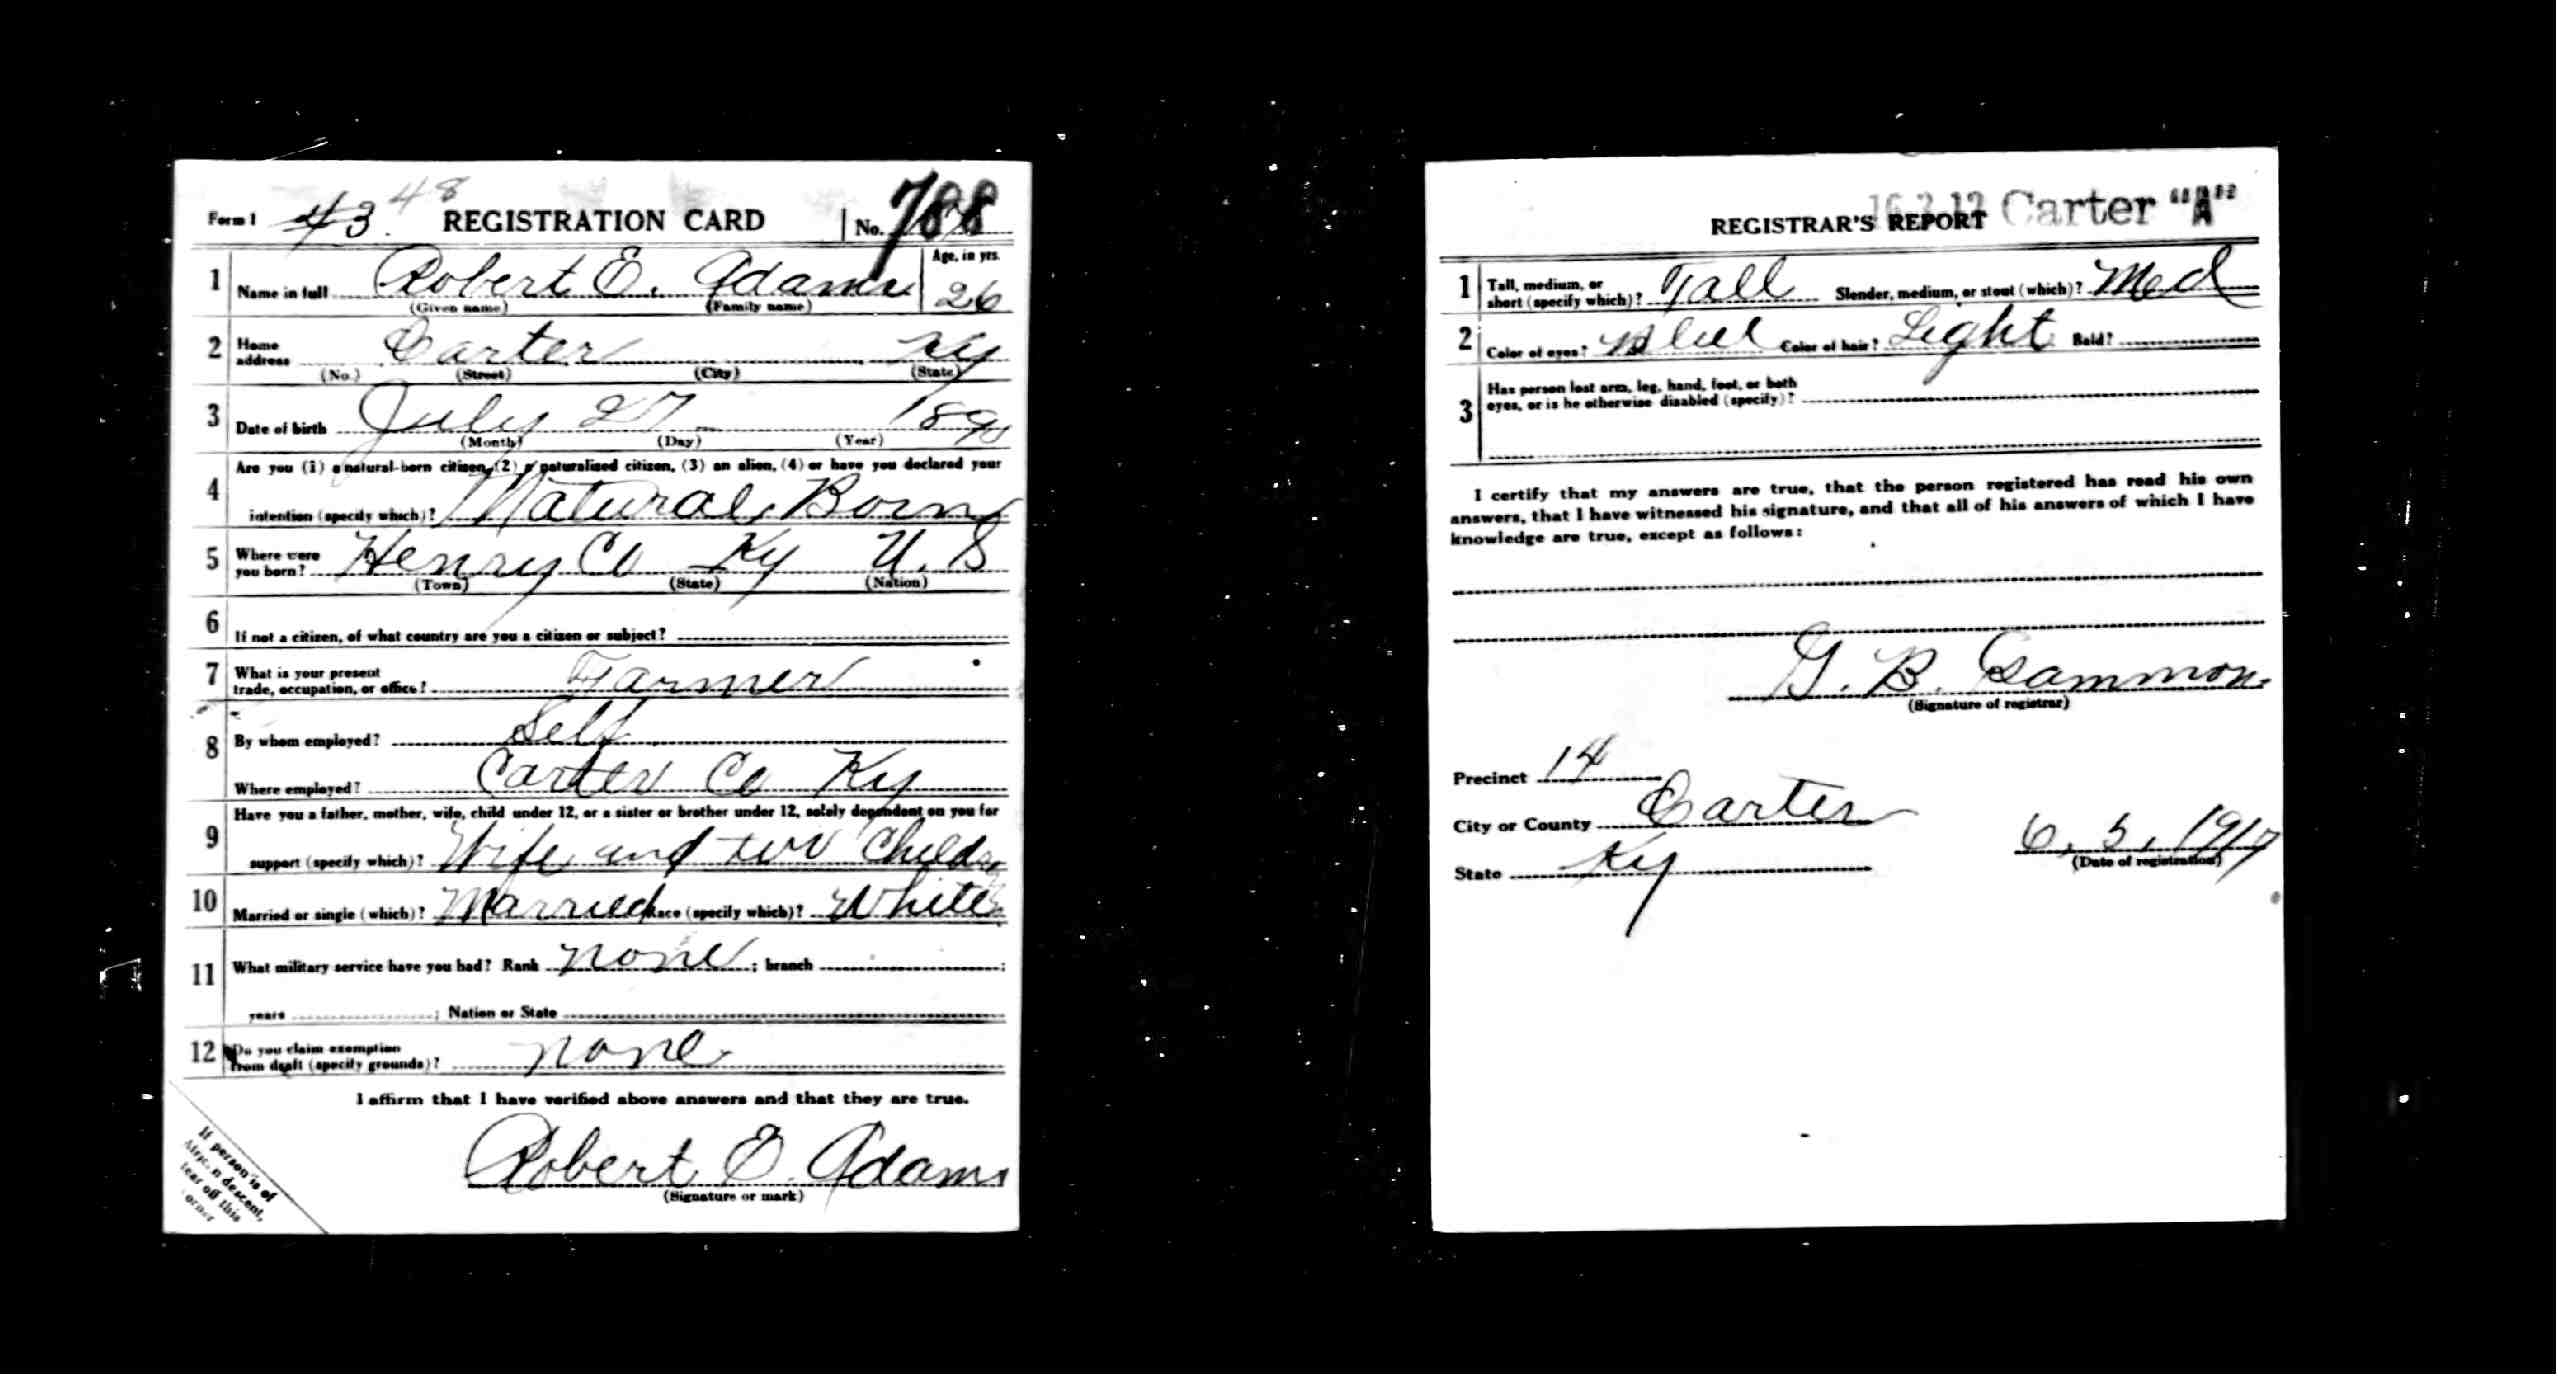 Form 1 43 48 REGISTRATION CARD No. 788
1 Name in full Robert E. Adams Age, in yrs. 26
(Given name) (Family name)
2 Home address Carter Ky
(No.) (Street) (City) (State)
3 Date of birth July 27 1890
(Month) (Day) (Year)
4 Are you (1) a natural-born citizen, (2) a naturalized citizen, (3) an alien, (4) or have you declared your
intention (specify which)? Natural Born
5 Where were you born? Henry Co Ky U.S
(Town) (State) (Nation)
6 If not a citizen, of what country are you a citizen or subject?
7 What is your present
trade, occupation, or office? Farmer
8 By whom employed? Self
Where employed? Carter Co Ky
9 Have you a father, mother, wife, child under 12, or a sister or brother under 12, solely dependent on you for
support (specify which)? Wife and two Children
10 Married or single (which)? Married Race (specify which)? White
11 What military service have you had? Rank none ; branch ;
years ; Nation or State
12 Do you claim exemption
from draft (specify grounds)? none
I affirm that I have verified above answers and that they are true.
Robert E. Adams
(Signature or mark)
If person is of
African descent,
tear off this
corner
REGISTRAR'S REPORT Carter "A"
1 Tall, medium, or
short (specify which)? Tall Slender, medium, or stout (which)? Med
2 Color of eyes? Blue Color of hair? Light Bald?
3 Has person lost arm, leg, hand, foot, or both
eyes, or is he otherwise disabled (specify)?
I certify that my answers are true, that the person registered has read his own
answers, that I have witnessed his signature, and that all of his answers of which I have
knowledge are true, except as follows:
G. B. Gammon
(Signature of registrar)
Precinct 14
City or County Carter
State Ky
6, 5, 1917
(Date of registration)